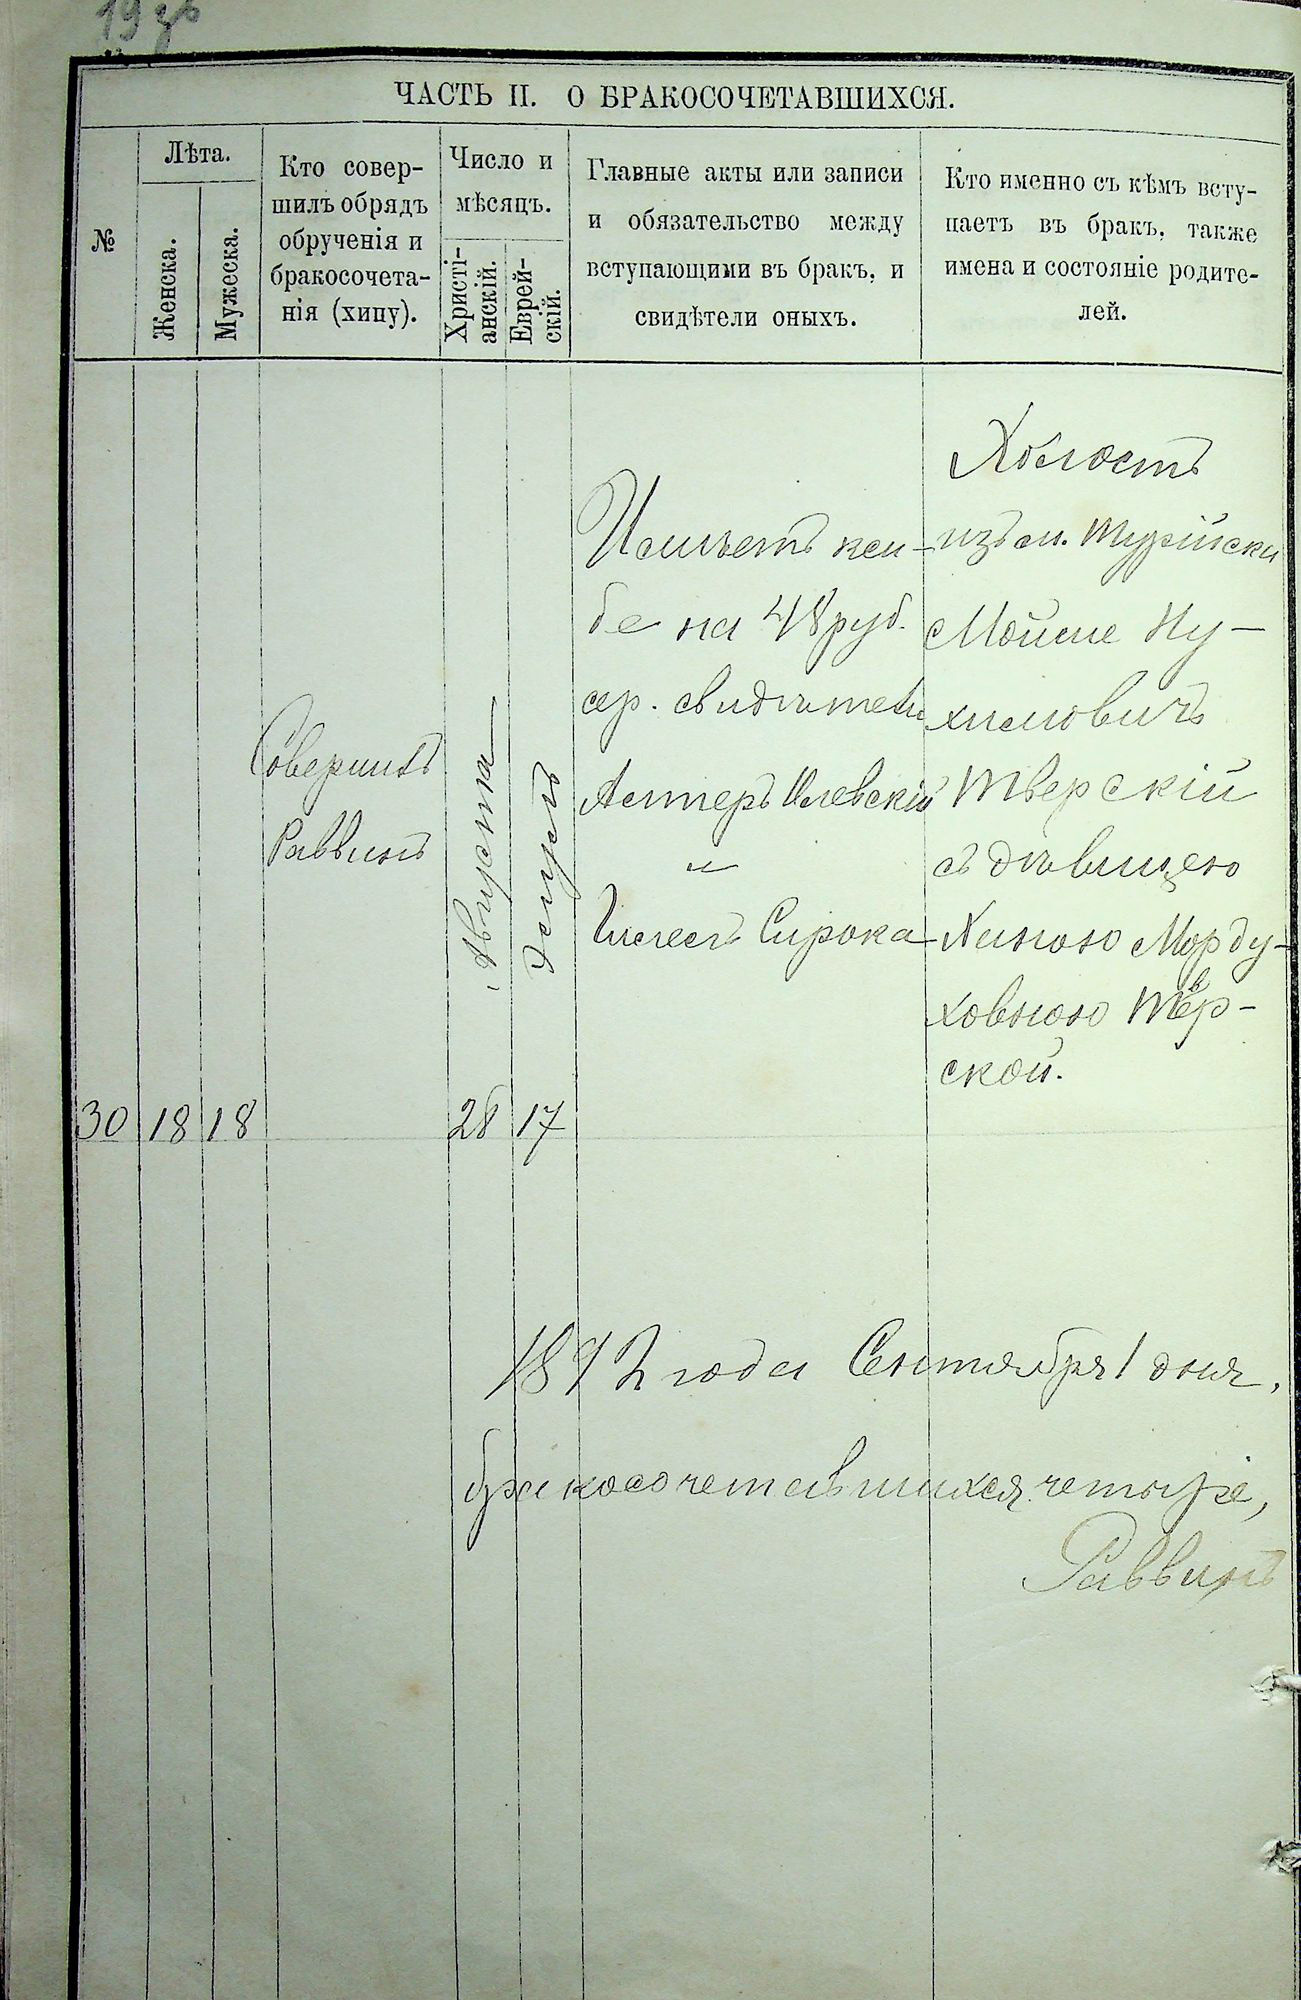 19 зв
ЧАСТЬ II. О БРАКОСОЧЕТАВШИХСЯ.
№
Лѣта.
Женска.
Мужеска.
Кто совер-
шилъ обрядъ
обрученія и
бракосочета-
нія (хипу).
Число и
мѣсяцъ.
Христі-
анскій.
Еврей-
скій.
Главные акты или записи
и обязательство между
вступающими въ бракъ, и
свидѣтели оныхъ.
Кто именно съ кѣмъ всту-
паетъ въ бракъ, также
имена и состояніе родите-
лей.
30
18
18
Совершилъ
Раввинъ
Августа
26
Элулъ
17
Имѣетъ ксу-
бе на 48 руб.
сер. свидѣтели
Олевскій
и
Сирока
Холостъ
изъ м. Турійска
Мойше Ну-
химовичъ
Тверскій
съ дѣвицею
Ханою Морду-
ховною Твер-
ской.
1892 года Сентября 1 дня,
бракосочетавшихся четыре,
Раввинъ